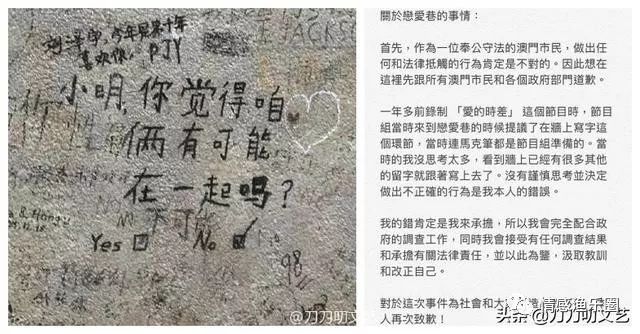 喜欢你, PJY
JACKSO
小明,你觉得咱
俩有可能
在一起吗?
不可能
Yes No
98
@刀刀明文艺
關於戀愛巷的事情：
首先，作為一位奉公守法的澳門市民，做出任
何和法律抵觸的行為肯定是不對的。因此想在
這裡先跟所有澳門市民和各個政府部門道歉。
一年多前錄制 「愛的時差」 這個節目時，節目
組當時來到戀愛巷的時候提議了在牆上寫字這
個環節，當時連馬克筆都是節目組準備的。當
時的我沒思考太多，看到牆上已經有很多其他
的留字就跟著寫上去了。沒有謹慎思考並決定
做出不正確的行為是我本人的錯誤。
我的錯肯定是我來承擔，所以我會完全配合政
府的調查工作，同時我會接受有任何調查結果
和承擔有關法律責任，並以此為鑒，汲取教訓
和改正自己。
對於這次事件為社會和大
人再次致歉！
情感渔乐圈
头条 @刀刀明文艺